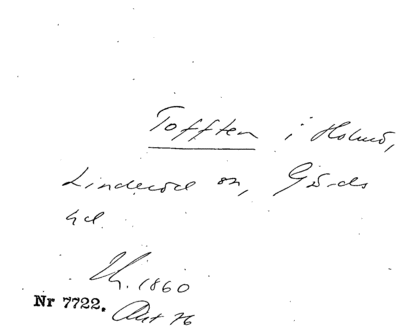 Tofften i Holmö,
Linderöd sn, Gärds
hd.
Th. 1860
Nr 7722. Akt 76